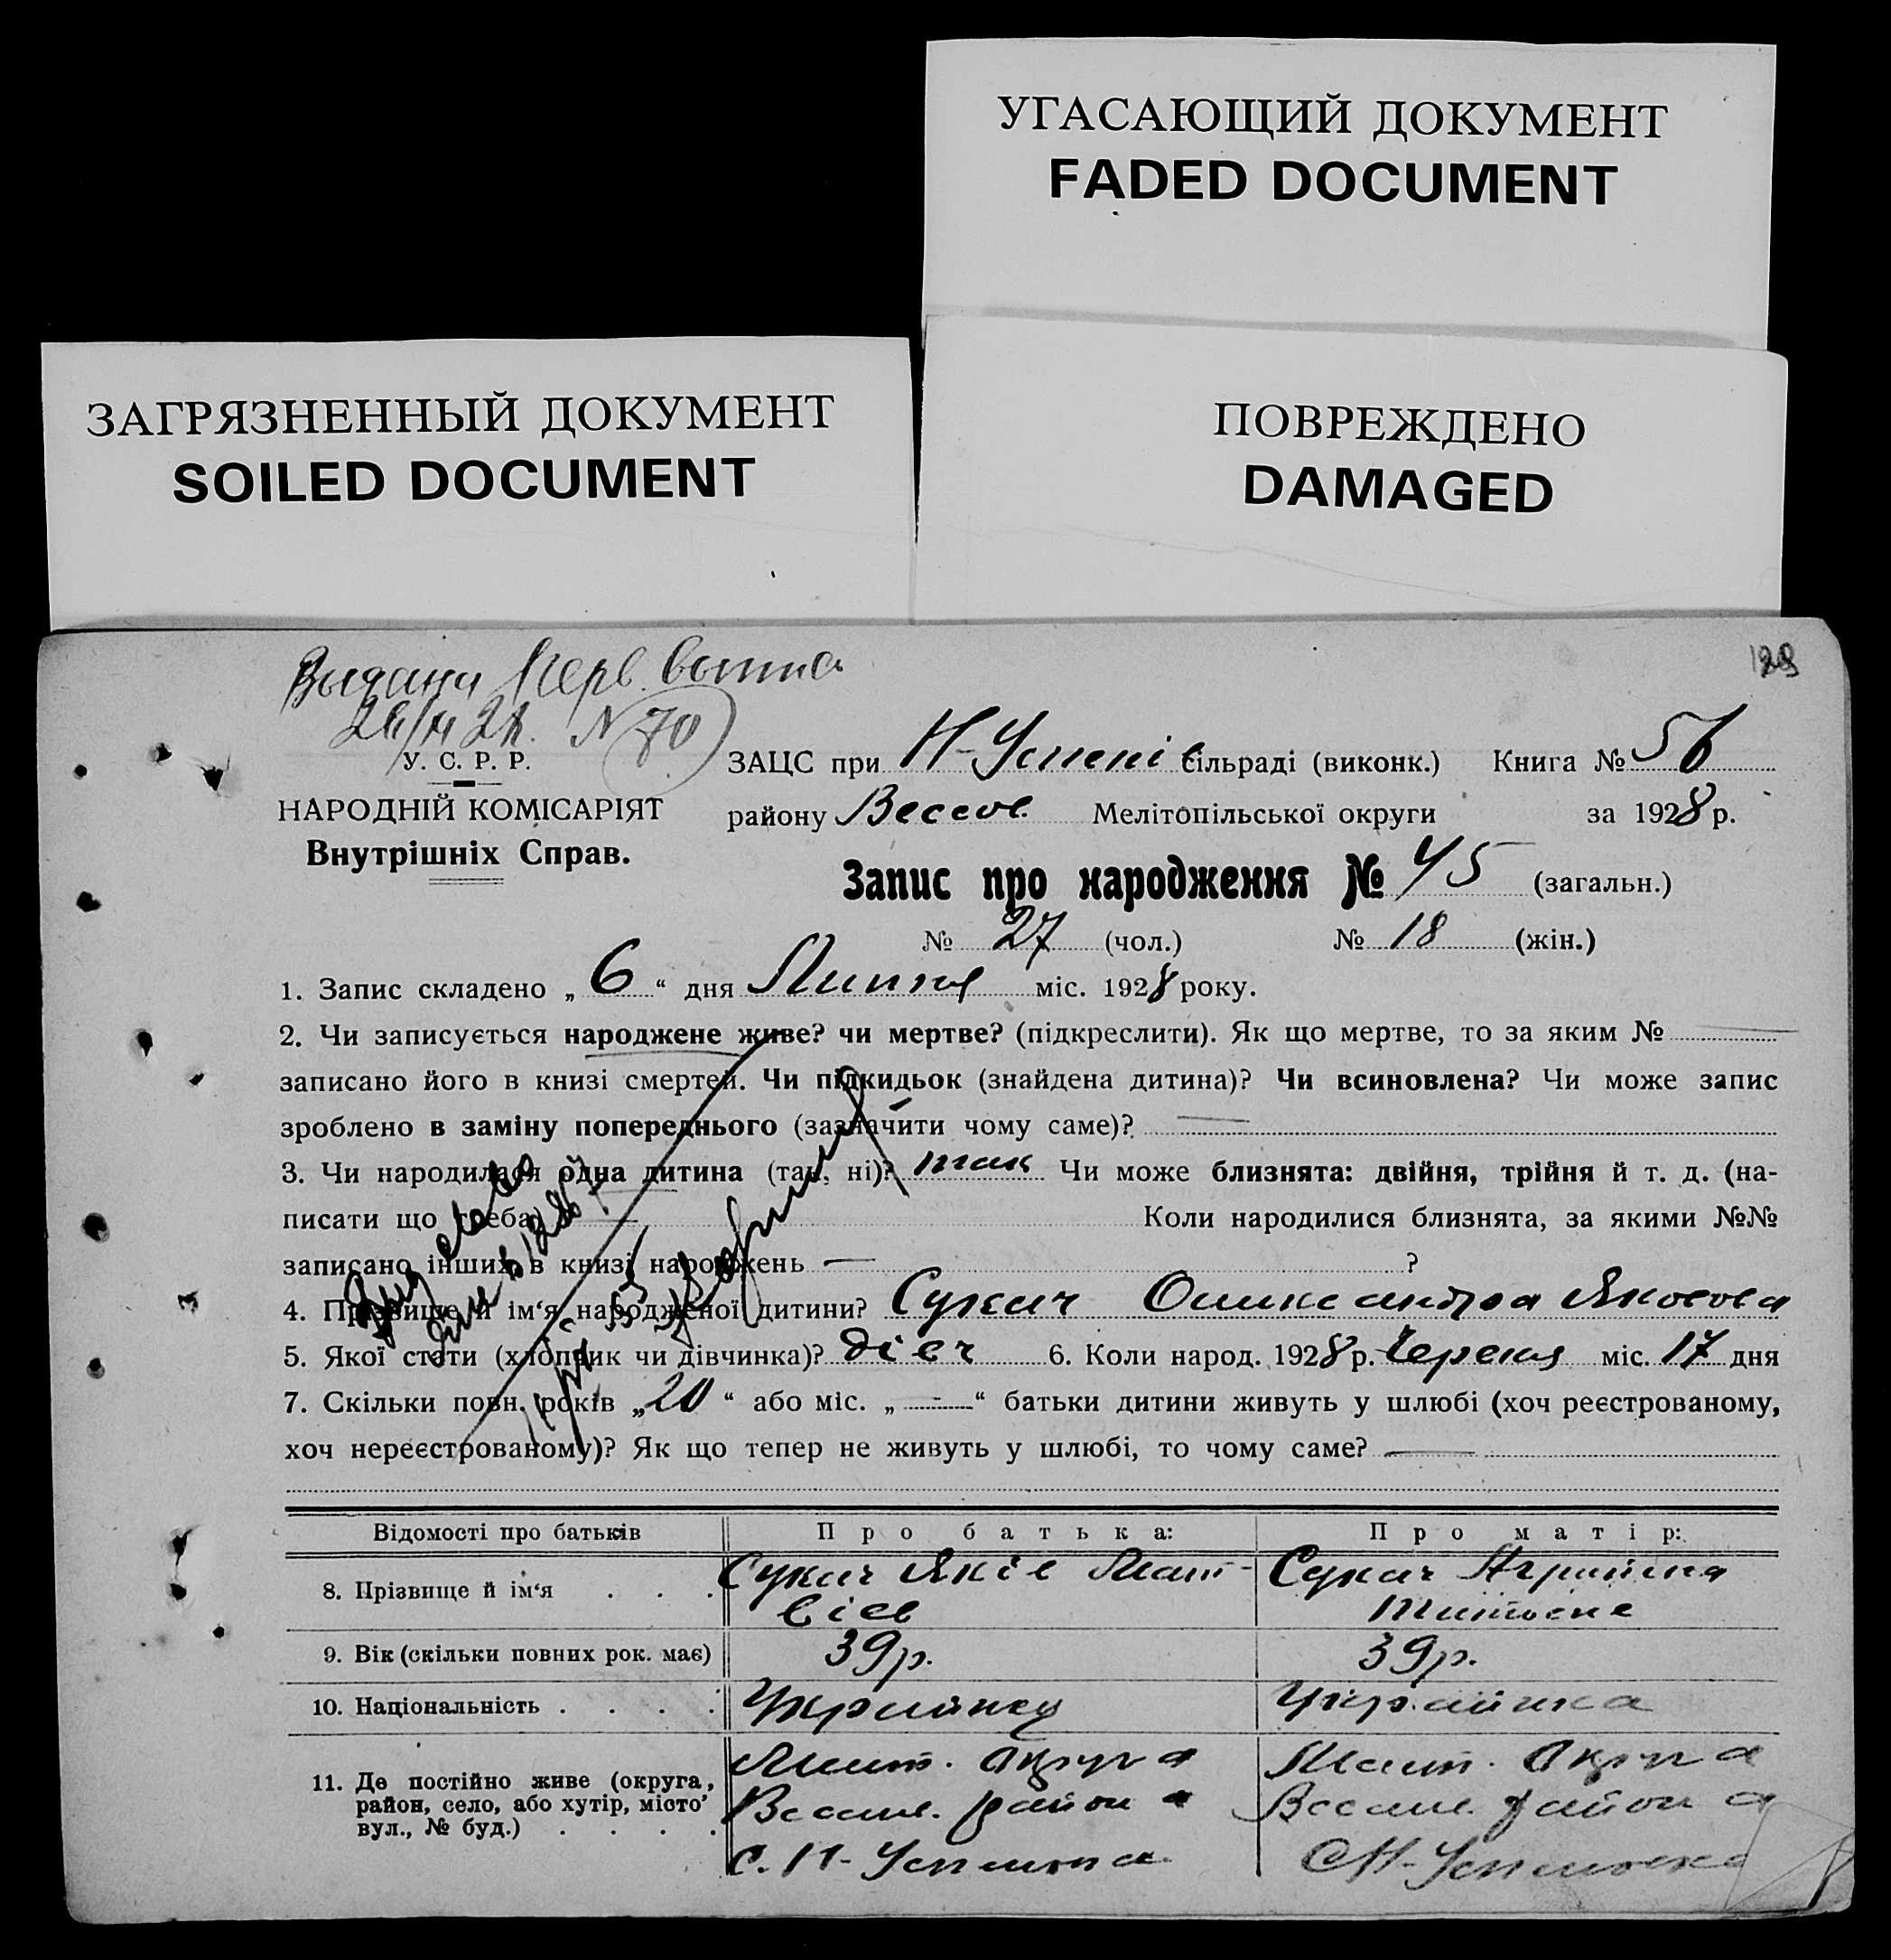 УГАСАЮЩИЙ ДОКУМЕНТ
FADED DOCUMENT
ЗАГРЯЗНЕННЫЙ ДОКУМЕНТ
SOILED DOCUMENT
ПОВРЕЖДЕНО
DAMAGED
128
№ 70
У. С. Р. Р.
НАРОДНІЙ КОМІСАРІЯТ
Внутрішніх Справ.
ЗАЦС при Н-Успенів сільраді (виконк.) Книга № 56
району Весел. Мелітопільської округи за 1928 р.
Запис про народження № 45 (загальн.)
№ 27 (чол.) № 18 (жін.)
1. Запис складено „ 6 “ дня Липня міс. 1928 року.
2. Чи записується народжене живе? чи мертве? (підкреслити). Як що мертве, то за яким №
записано його в книзі смертей. Чи підкидьок (знайдена дитина)? Чи всиновлена? Чи може запис
зроблено в заміну попереднього (зазначити чому саме)?
3. Чи народилася одна дитина (так, ні)? так Чи може близнята: двійня, трійня й т. д. (на-
писати що треба) Коли народилися близнята, за якими №№
записано інших в книзі народжень — ?
4. Прізвище й ім‘я народженої дитини? Сукач Олександра Яковова
5. Якої стати (хлопчик чи дівчинка)? дівч 6. Коли народ. 1928 р. Червня міс. 17 дня
7. Скільки повн. років „ 20 “ або міс. „ - “ батьки дитини живуть у шлюбі (хоч реєстрованому,
хоч нереєстрованому)? Як що тепер не живуть у шлюбі, то чому саме? —
Відомості про батьків Про батька: Про матір:
8. Прізвище й ім‘я . . . Сукач Яків Мат- Сукач Агрипина
вієв Титовна
9. Вік (скільки повних рок. має) 39 р. 39 р.
10. Національність . . . . Українец Українка
11. Де постійно живе (округа, Меліт. Округа Меліт. Округа
район, село, або хутір, місто’ Весел. района Весел. района
вул., № буд.) . . . . с. Н-Успеновка С Н-Успеновка